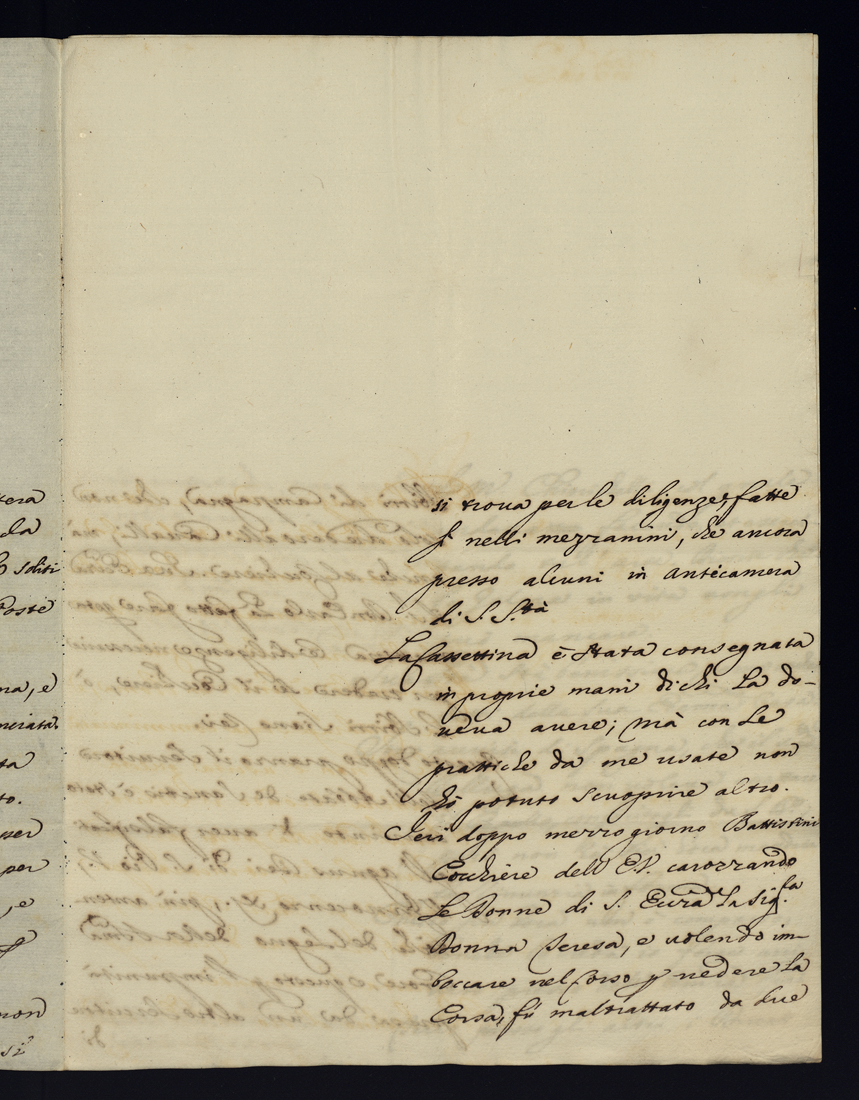 si trova per le diligenze, fatte
sì nelli mezzanini, che ancora
presso alcuni in antecamera
di S. S.tà
La Cassettina è stata consegnata
in proprie mani di chi la do-
veva avere; mà con le
prattiche da me usate non
hò potuto scuoprire altro.
Jeri doppo mezzo giorno Battistini
Cocchiere dell' E.V. carozzando
le Donne di S. Ecc.za la Sig.ra
Donna Teresa, e volendo im-
boccare nel Corso p vedere la
Corsa, fù maltrattato da due
tera
da
soliti
Poste
na, e
nciata.
ta
to.
per
per
, e
non
si